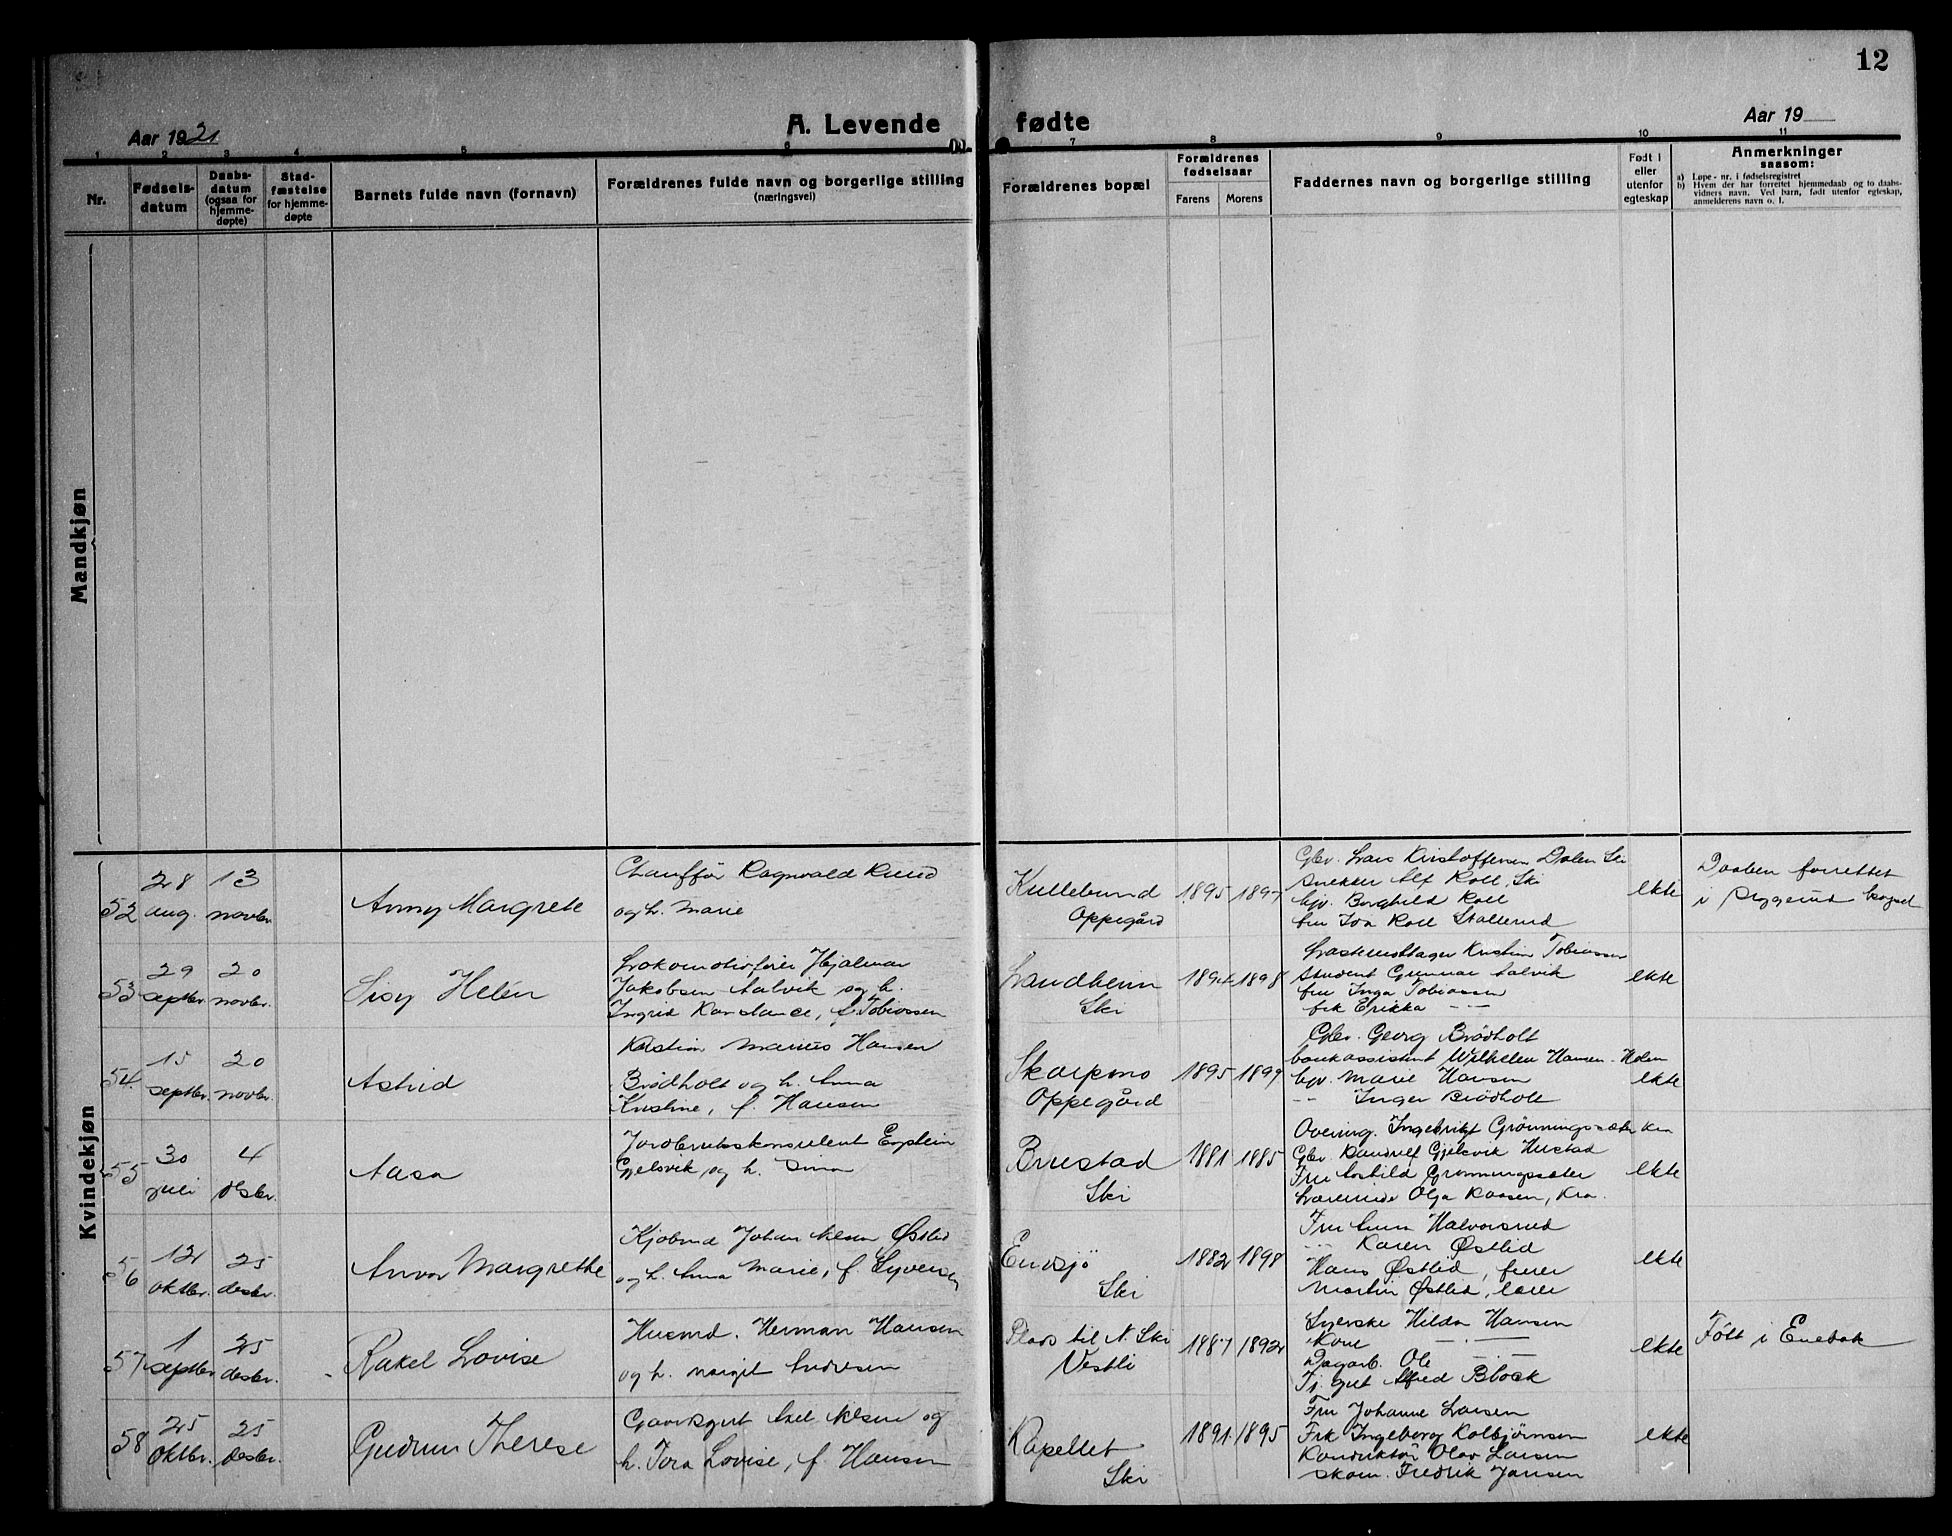 12
Aar 1921
A. Levende fødte
Aar 19
1 2 3 4 5 6 7 8 9 10 11
Nr.
Fødsels-
datum
Daabs-
datum
(ogsaa for
hjemme-
døpte)
Stad-
fæstelse
for hjemme-
døpte
Barnets fulde navn (fornavn)
Forældrenes fulde navn og borgerlige stilling
(næringsvei)
Forældrenes bopæl
Forældrenes
fødselsaar
Farens Morens
Faddernes navn og borgerlige stilling
Født i
eller
utenfor
egteskap
Anmerkninger
saasom:
a) Løpe-nr. i fødselsregistret
b) Hvem der har forrettet hjemmedaab og to daabs-
vidners navn. Ved barn, født utenfor egteskap,
anmelderens navn o. l.
Mandkjøn
Kvindekjøn
52
28
aug.
13
novbr.
Anny Margrete
Chauffør Ragnvald Ruud
og h. Marie
Kullebund
Oppegård
1895 1897
Gbr. Lars Kristoffersen Dalen Ski
Snekker Alf Roll, Ski
Borghild Roll
fru Roll
ekte
Daaben forrettet
i kapel
53
29
septbr.
20
novbr.
Sisy Helén
Lokomotivfører Hjalmar
Jakobsen Aalvik og h.
Ingrid Konstance, f. Tobiassen
Landheim
Ski
1894 1898
Kristian Tobiassen
Student Gunnar Aalvik
fru Inga Tobiassen
frk Erikka — —
ekte
54
15
septbr.
20
novbr.
Astrid
Kristian Marius Hansen
Brødholt og h. Anna
Kristine, f. Hansen
Skarpsno
Oppegård
1895 1899
Gbr. Georg Brødholt
bankassistent Wilhelm Hansen - Holm
Marie Hansen
-- Inger Brødholt
ekte
55
30
juli
4
desbr.
Aasa
Jordbrukskonsulent
Gjelsvik og h. Sina
Brustad
Ski
1881 1885
Overing. Ingebrikt Grønningsæter Kra
Gbr. Gjelsvik
Fru Grønningsæter
Olga Kaasen, Kra.
ekte
56
12
oktbr.
25
desbr.
Anna Margrethe
Johan Nilsen Østlid
og h. Anna Marie, f. Syversen
Endsjø
Ski
1882 1898
Fru Anna Halvorsrud
-- Karen Østlid
Hans Østlid,
Martin Østlid,
ekte
57
1
septbr.
25
desbr.
Rakel Lovise
Husmd. Herman Hansen
og h. Margit Andresen
Plads til N. Ski
Vestli
1887 1892
Syerske Hilda Hansen
Kone — . —
Dagarb. Ole — . —
Tj. gut Alfred Block
ekte
Född i Enebak
58
25
oktbr.
25
desbr.
Gudrun Therese
Axel Nilsen og
h. Tora Lovise, f. Hansen
Kapellet
Ski
1891 1895
Fru Johanne Larsen
Frk Ingeborg Kolbjørnsen
Konduktør Olav Larsen
Skom. Fredrik Jansen
ekte